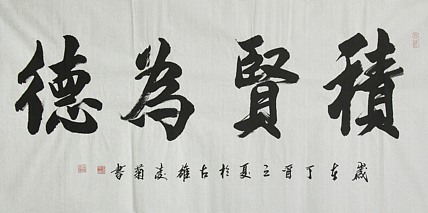 積賢為德
歲在丁酉之夏於古雄凌菊書